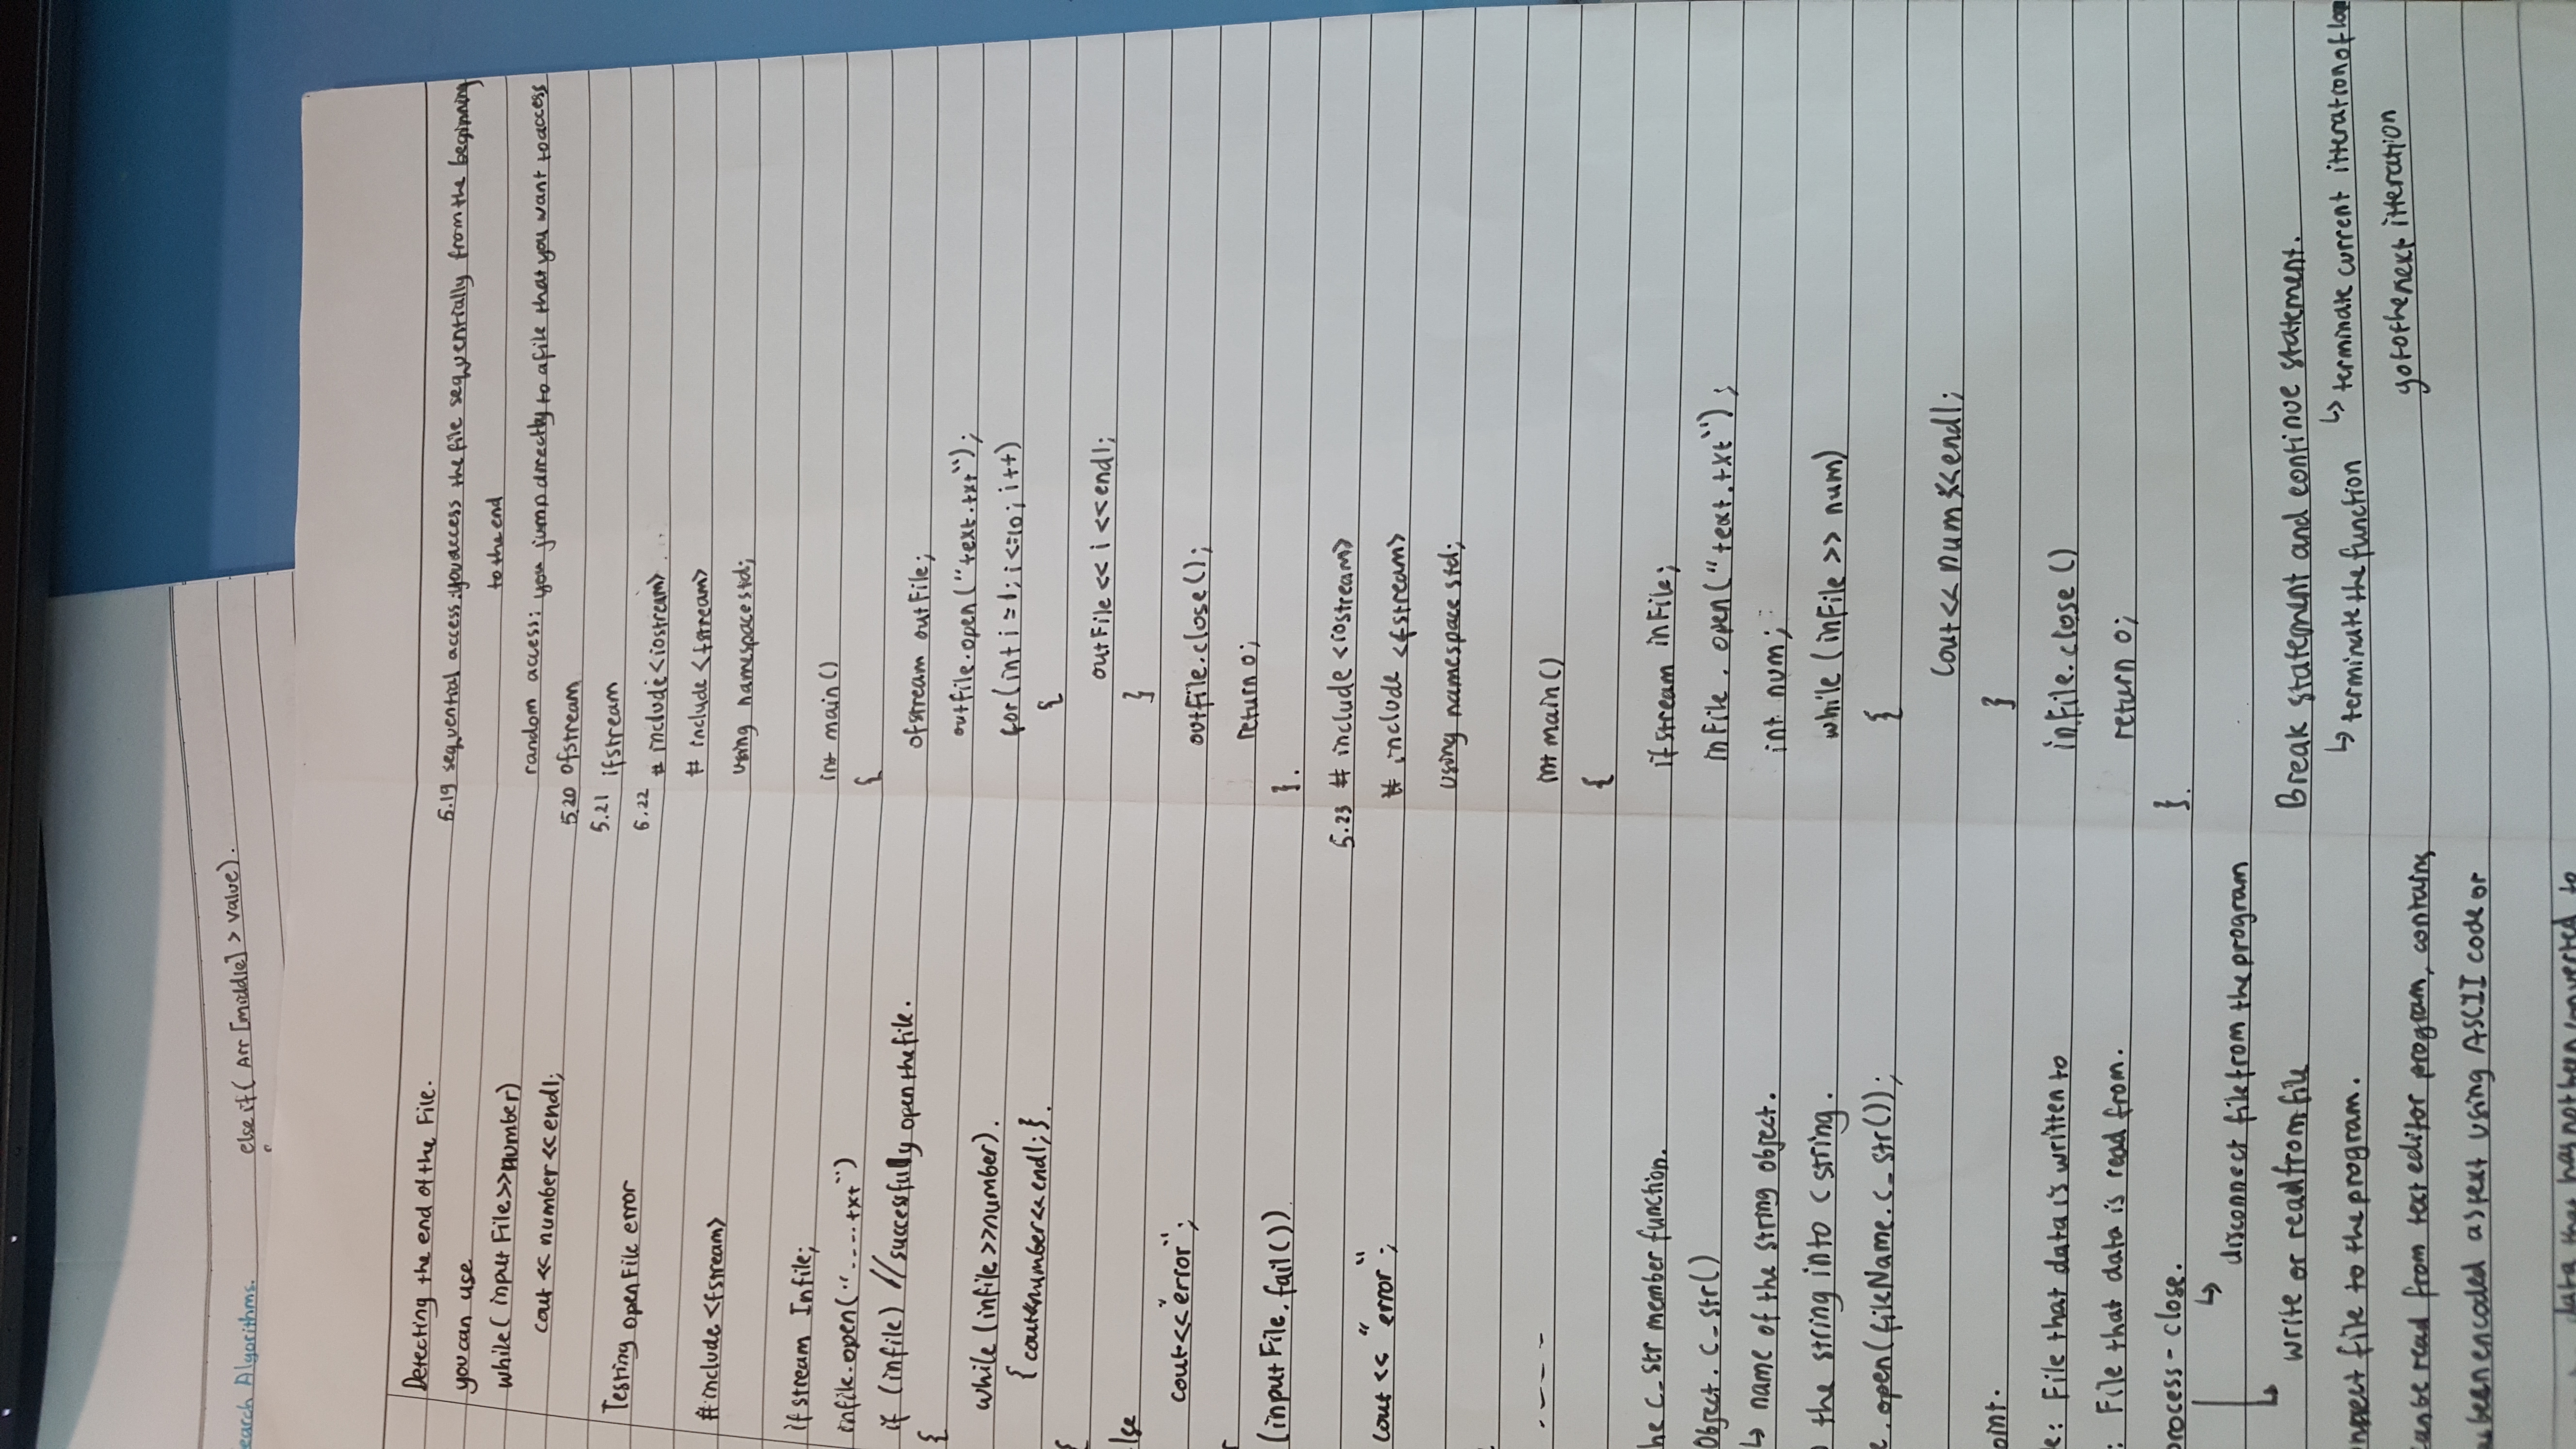 earch Algorithms.
else if ( Arr [middle] > value).
Detecting the end of the File.
you can use
while ( input File >> number)
cout << number << endl;
Testing open File error
# include <fstream>
if stream Infile;
infile.open(".....txt")
if (infile) // successfully open the file.
{
while (infile >> number).
{ cout << number << endl; }.
{
lse
cout << "error";
(input File. fail())
cout << "error";
----
he c_str member function.
Object. c_str()
↳ name of the string object.
the string into c string.
e .open(fileName.c_str());
oint.
e: File that data is written to
: File that data is read from.
process - close.
↳ disconnect file from the program
↳ write or read from file
nnect file to the program.
can be read from text editor program, contains
as been encoded as text using ASCII code or
data that has not been converted to
5.19 sequential access: you access the file sequentially from the beginning
to the end
random access: you jump directly to a file that you want to access
5.20 ofstream
5.21 ifstream
5.22 # include <iostream>
# include <fstream>
using namespace std;
int main ()
{
ofstream outFile;
outfile.open ("text.txt");
for (int i = 1; i <=10; i ++)
{
outFile << i << endl;
}
outfile.close();
return 0;
}.
5.23 # include <iostream>
# include <fstream>
using namespace std;
int main ()
{
if stream inFile;
inFile . open ("text.txt") ;
int num;
while (inFile >> num)
{
cout << num << endl;
}
inFile.close ()
return 0;
}.
Break statement and continue statement.
↳ terminate the function ↳ terminate current itteration of loop
go to the next itteration